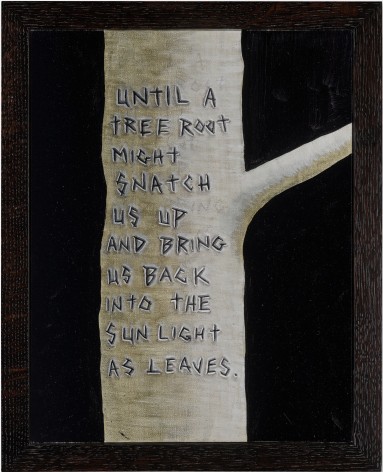 UNTIL A
TREE ROOT
MIGHT
SNATCH
US UP
AND BRING
US BACK
INTO THE
SUNLIGHT
AS LEAVES.